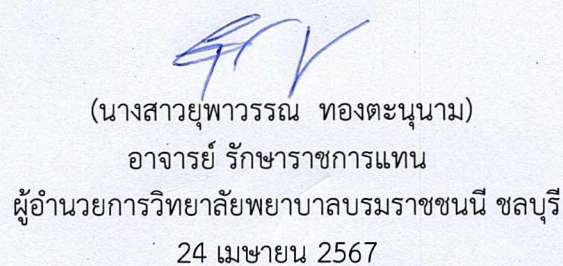 (นางสาวยุพาวรรณ ทองตะนุนาม)
อาจารย์ รักษาราชการแทน
ผู้อำนวยการวิทยาลัยพยาบาลบรมราชชนนี ชลบุรี
24 เมษายน 2567